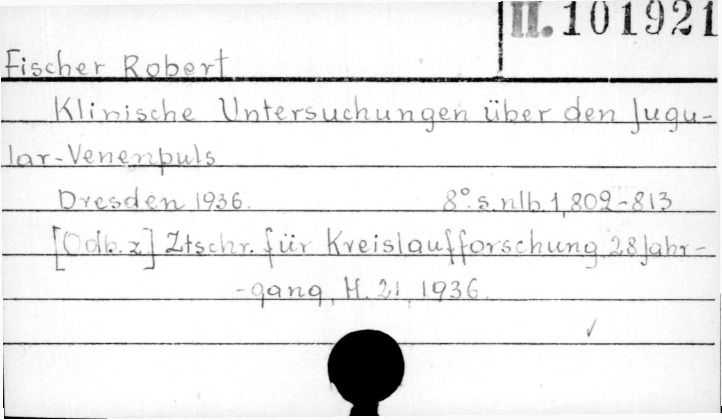 II. 101921
Fischer Robert
Klinische Untersuchungen über den Jugu-
lar-Venenpuls
Dresden 1936. 8°. s. nlb. 1, 809-813
[Odb. z] Ztschr. für Kreislaufforschung, 28 Jahr-
-gang, H. 21, 1936.